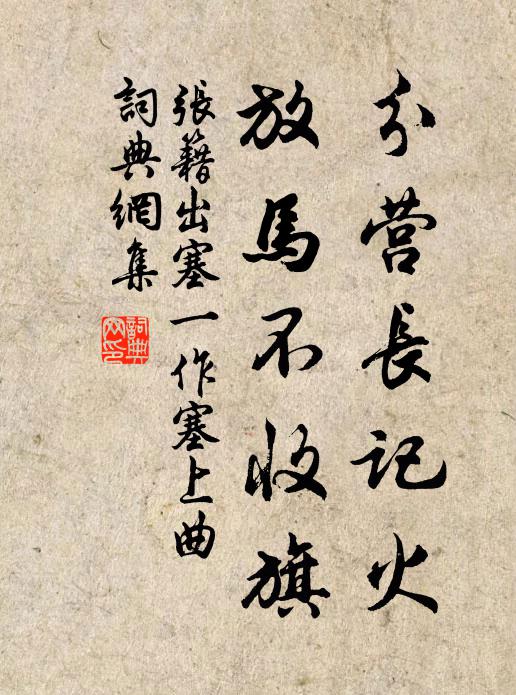 分营長記火
放馬不收旗
張籍出塞一作塞上曲
詞典網集
詞典网印